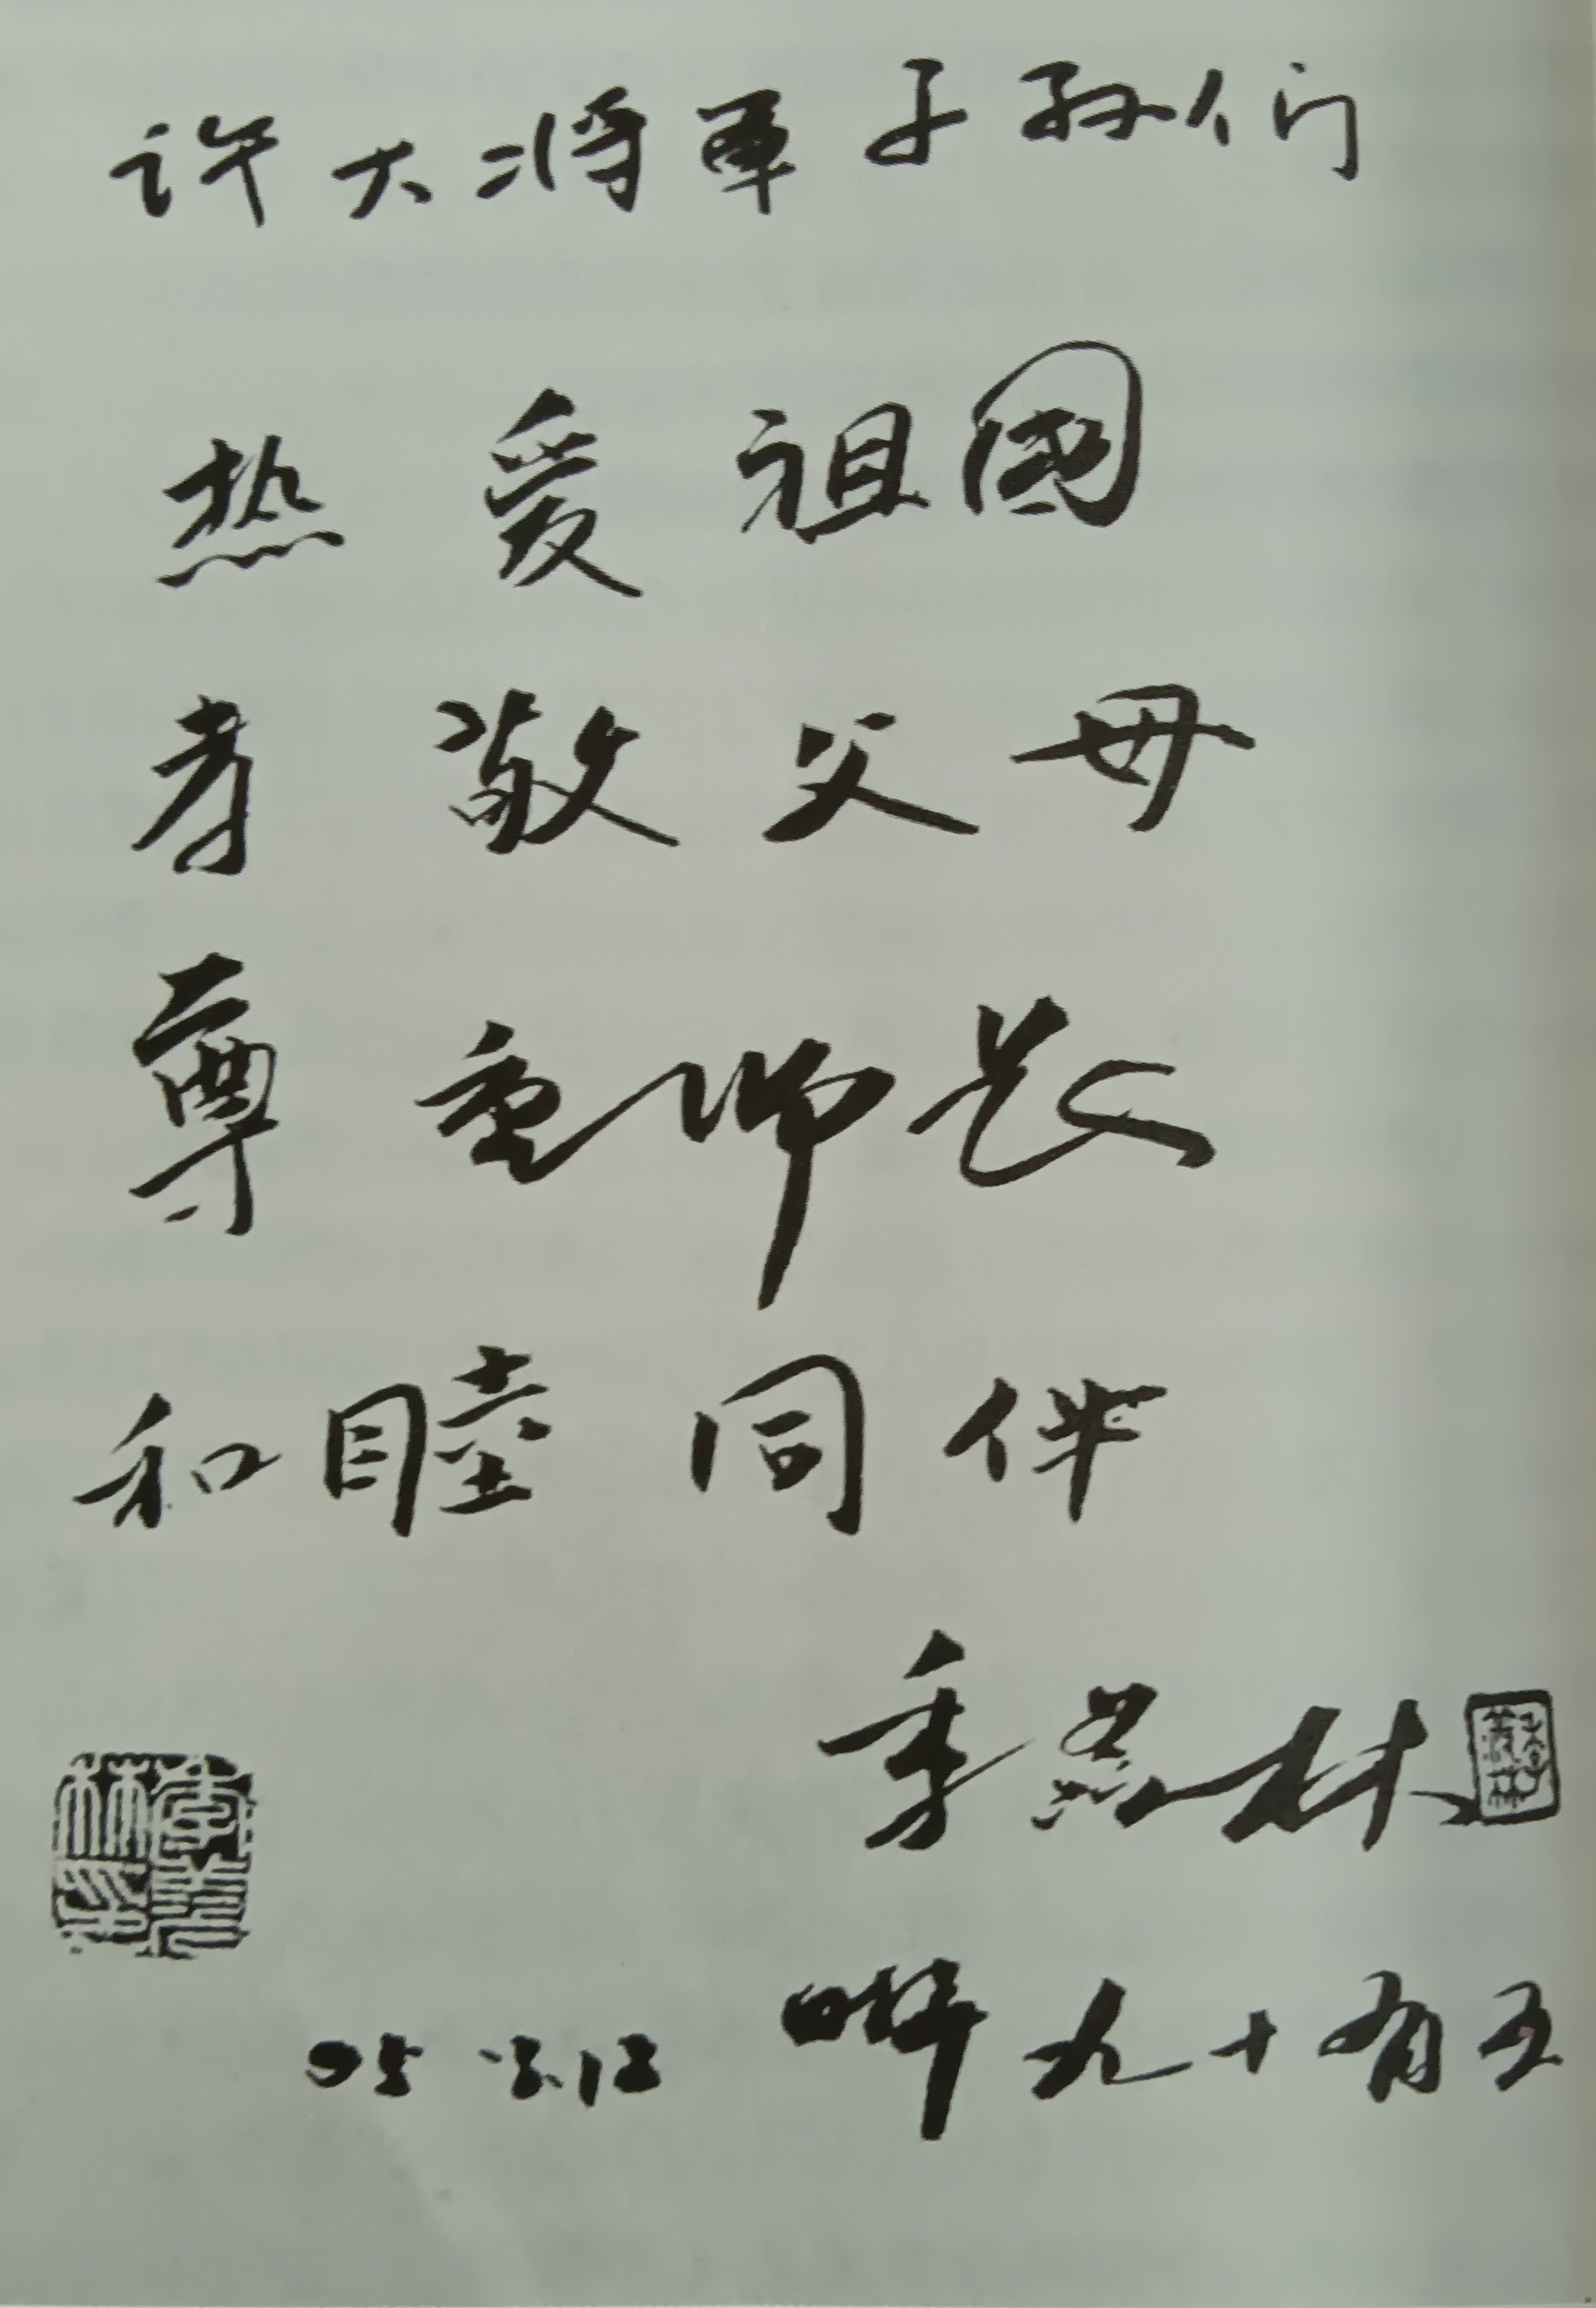 许大将军子孙们
热爱祖國
孝敬父母
尊重师长
和睦同伴
季羡林
季羡林
季羡林印
时年九十有五
05.8.12